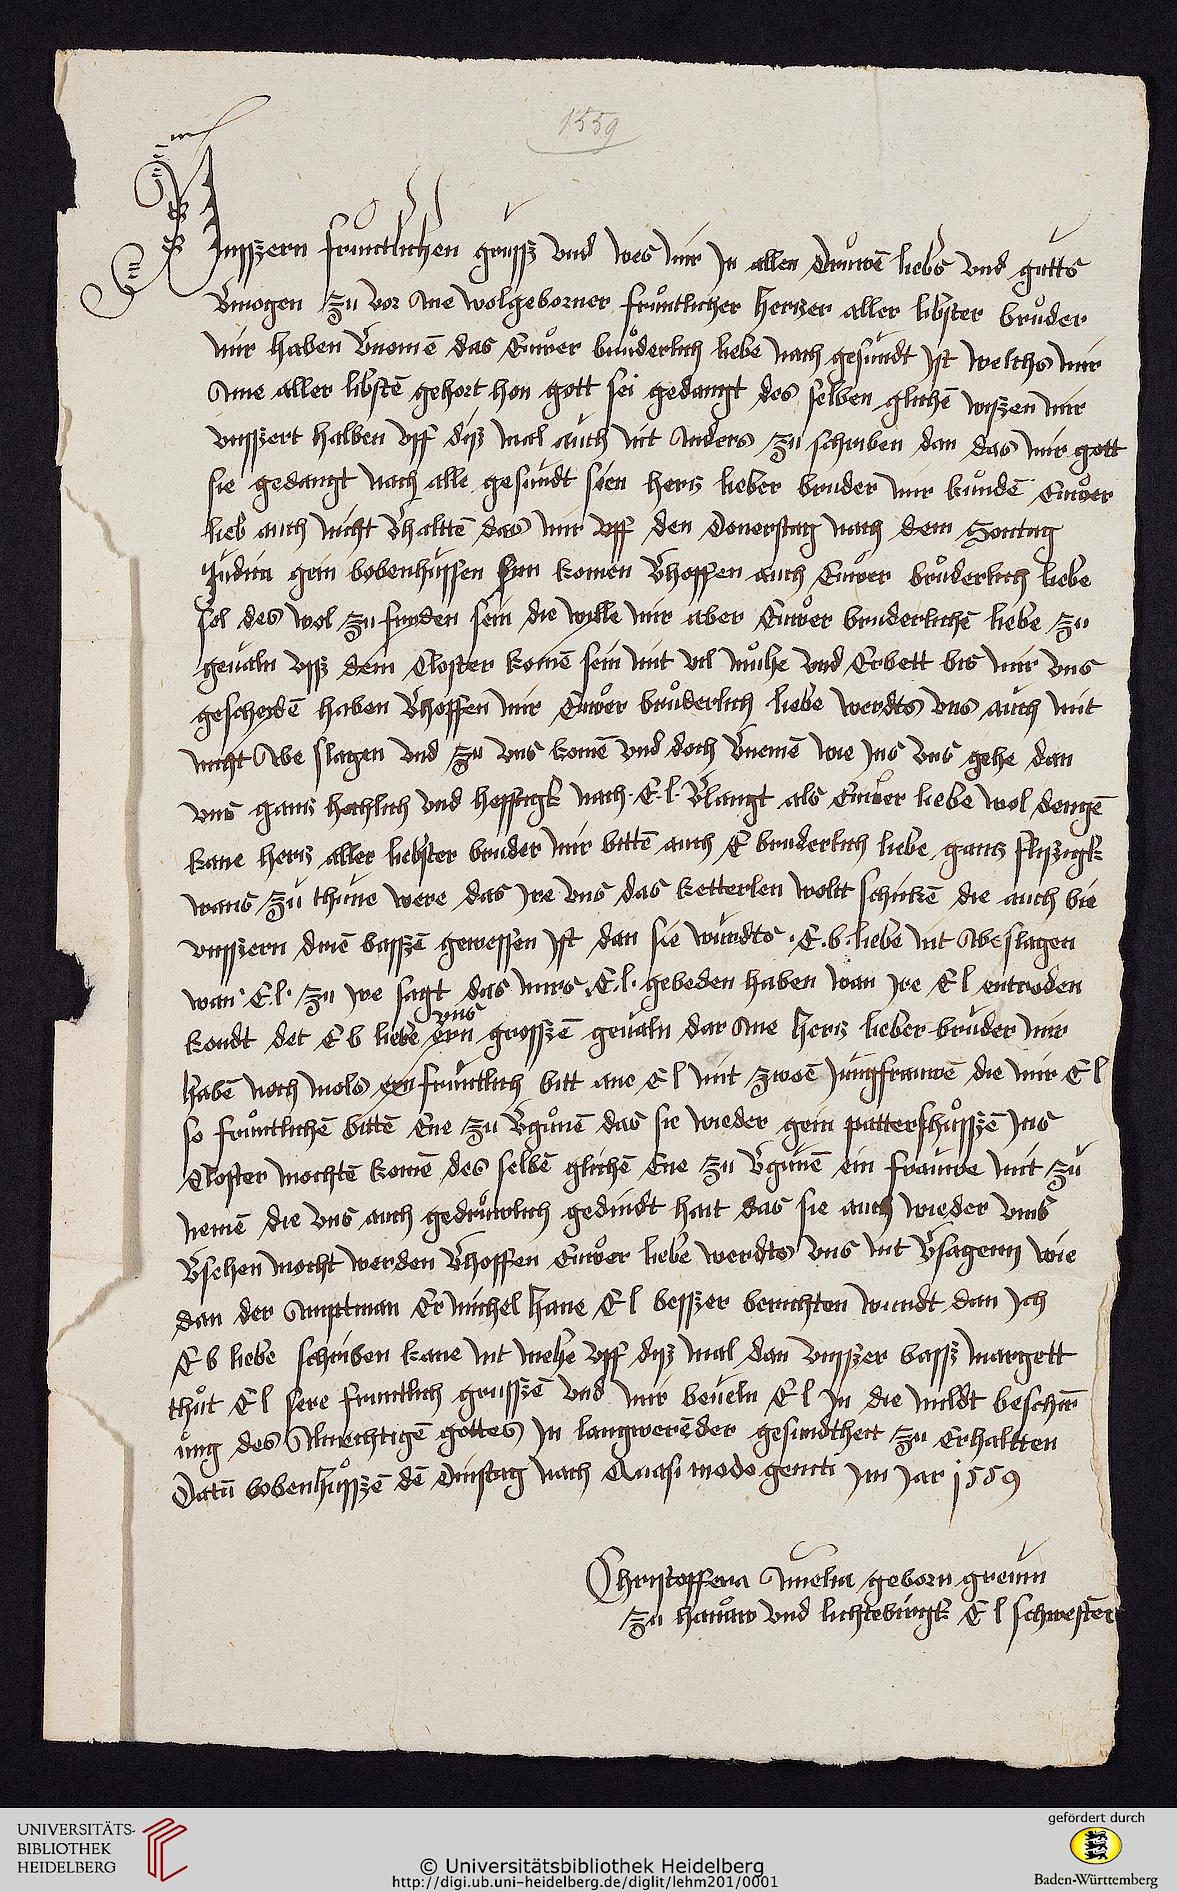 1559
Vnsszern fruntlichen grussz vnd wes mir Jn allen truwē liebs vnd gutts
v̄mogen zu vor Ane wolgeborner fruntlicher hertzer aller libster bruder
mir haben v̄nomē das Euwer bruderlich liebe nach gesundt Jst welchs mir
Ane aller libstē gehort hon gott sei gedangt des selben glichē wiszen mir
vnsszert halben vff disz mal auch nit Anders zu schriben dan das mir gott
sie gedangt nach alle gesundt sien hertz lieber bruder mir kundē Euwer
lieb auch nicht v̄haltte das mir vff den Donerstag nach dem Sontag
Judica gein bobenhussen sin komen v̄hoffen auch Euwer bruderlich liebe
sol des wol zu fryden sein die wylle mir aber Euwer bruderlichē liebe zu
geualn vsz dem Closter komē sein mit vil muhe vnd Erbett bis mir vns
gescheydē haben v̄hoffen mir Euwer bruderlich liebe werdts vns auch mit
nicht Abe slagen vnd zu vns komē vnd doch v̄nemē wie Jns vns gehe dan
vns gantz hochlich vnd hefftigk nach E l v̄langt als Euwer liebe wol dengē
kane hertz aller liebster bruder mir bittē auch E bruderlich liebe gantz fliszigk
wans zu thune were das Jre vns das ketterlen woltt schickē die auch bie
vnsszern basszē gewessen Jst dan sie wurdts E. b. liebe nit Abe slagen
wan E l zu Jre sagt das mirs E l gebeden haben wan Jre E l entroden
kondt det E b liebe vns ein grosszē geualn dar Ane hertz lieber bruder mir
habē noch mols ein fruntlich bitt ane E l mit zwoē Jungfrauwē die mir E l
so fruntlichē bittē Ene zu v̄gunē das sie wieder gein patterszhusszē Jns
Closter mochtē komē des selbē glichē Ene zu v̄gunē ein frauwe mit zu
nemē die vns auch gedruwlich gedindt hait das sie auch wieder
v̄sehen mocht werden v̄hoffen Euwer liebe werdts vns nit v̄sagenn wie
dan der Amptman Er michel hane E l besszer berichten wurdt dan Jch
E b liebe schriben kane nit mehe vff disz mal dan vnsszer bassz margett
thut E l sere fruntlich grusszē vnd mir beueln E l Jn die mildt beschir
ung des Almechtigē gottes Jn langwerēder gesundtheit zu Erhaltten
Datū bobenhusszē dē Dinstag nach Quasi modo geniti Jm Jar 1559
Christoffera Amelia geborn greuin
zu hanaw vnd lichtebergk E l schwester
UNIVERSITÄTS-
BIBLIOTHEK
HEIDELBERG
© Universitätsbibliothek Heidelberg
http://digi.ub.uni-heidelberg.de/diglit/lehm201/0001
gefördert durch
Baden-Württemberg